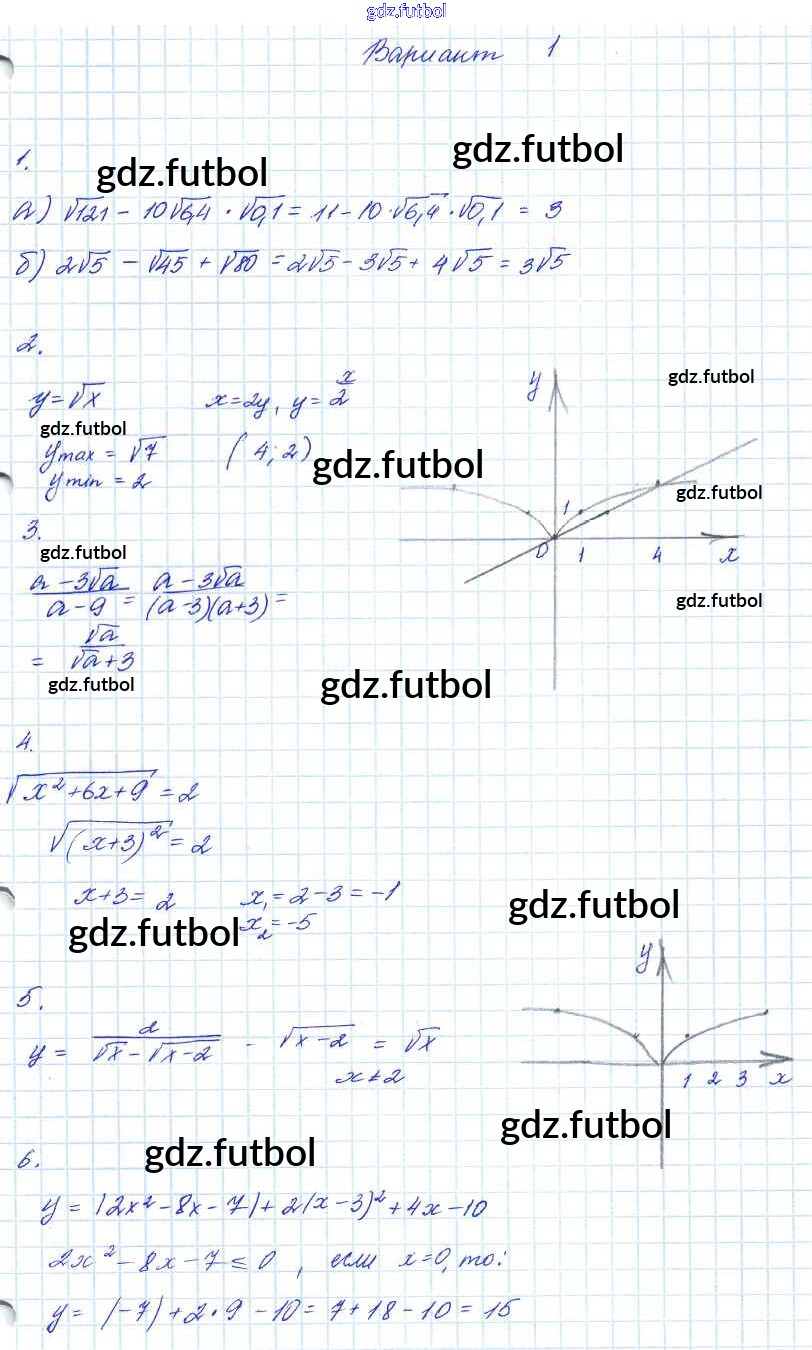 gdz.futbol
Вариант 1
1.
gdz.futbol gdz.futbol
а) √121 - 10√6,4 · √0,1 = 11 - 10·√6,4 · √0,1 = 3
б) 2√5 - √45 + √80 = 2√5 - 3√5 + 4√5 = 3√5
2.
y = √x x = 2y, y = x/2
gdz.futbol
y max = √7 (4; 2)
y min = 2
gdz.futbol
y
gdz.futbol
gdz.futbol
1
0 1 4 x
gdz.futbol
3.
gdz.futbol
(a - 3√a)/(a - 9) = (a - 3√a)/((a-3)(a+3)) =
= √a/(√a + 3)
gdz.futbol gdz.futbol
4.
√(x² + 6x + 9) = 2
√((x+3)²) = 2
x + 3 = 2 x₁ = 2 - 3 = -1
x₂ = -5
gdz.futbol gdz.futbol
5.
y = 2/(√x - √(x-2)) - √(x-2) = √x
x ≠ 2
y
1 2 3 x
gdz.futbol
6.
gdz.futbol
y = |2x² - 8x - 7| + 2(x - 3)² + 4x - 10
2x² - 8x - 7 ≤ 0, если x = 0, то:
y = |-7| + 2·9 - 10 = 7 + 18 - 10 = 15